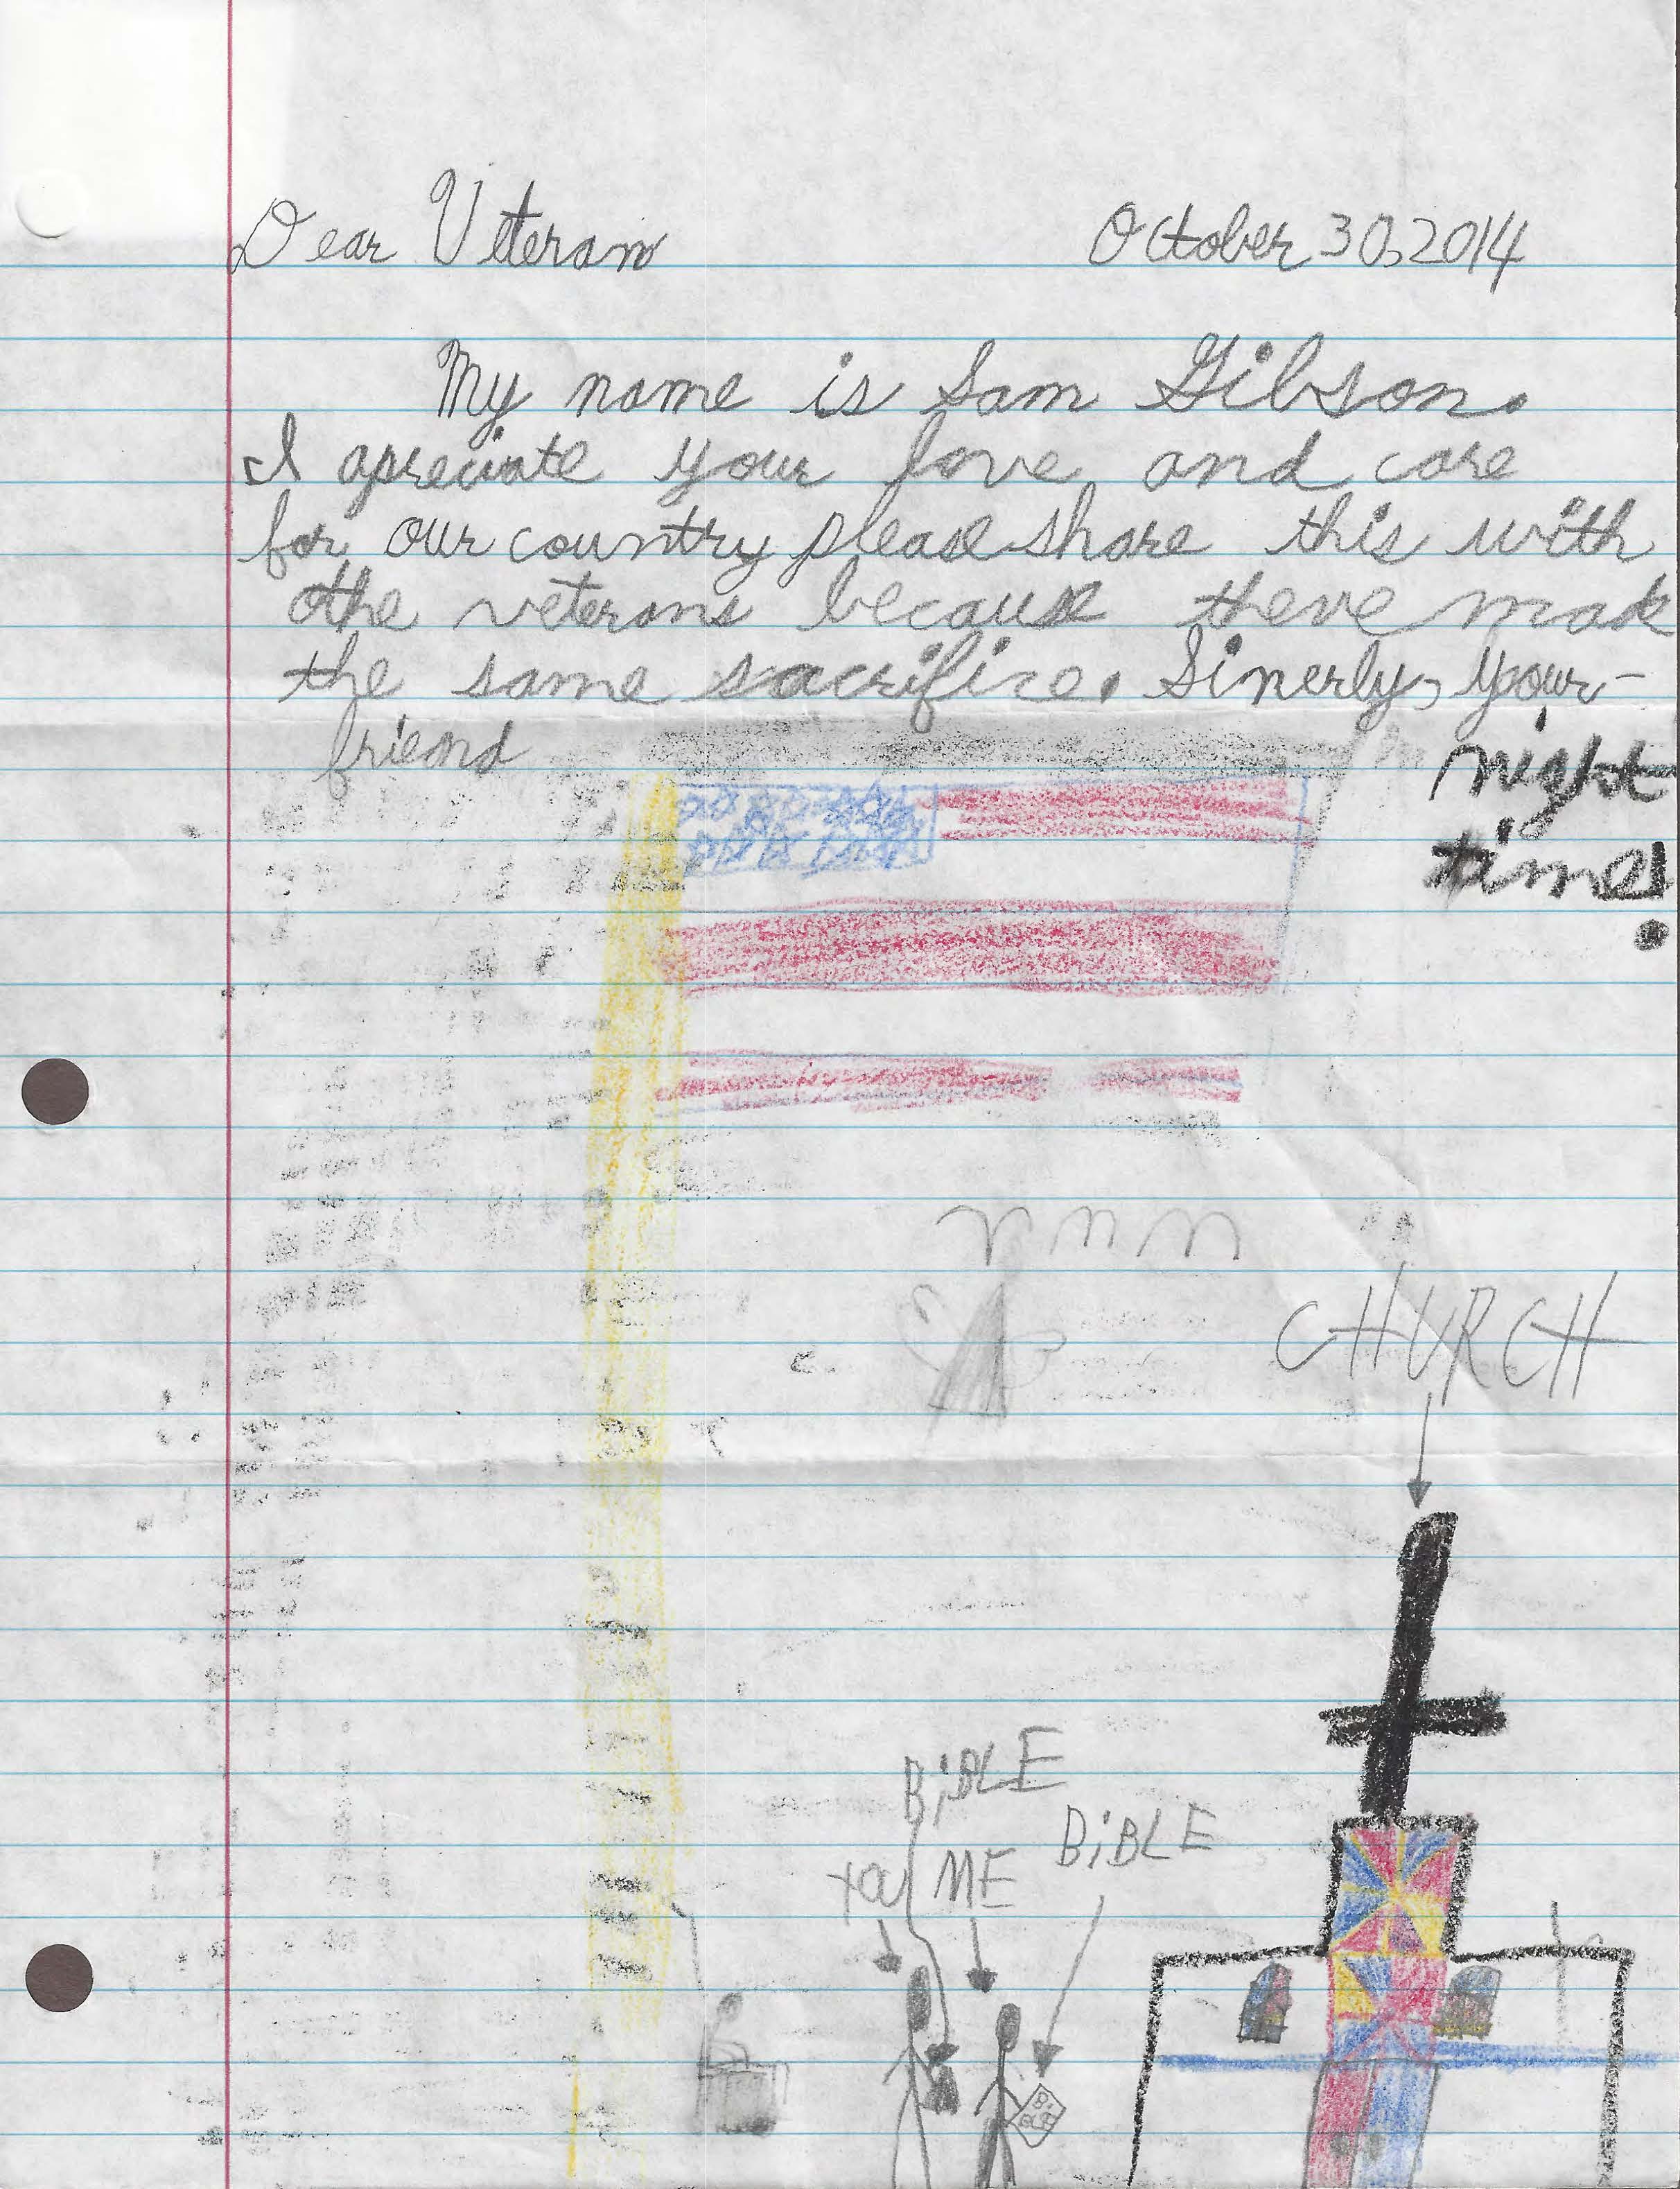 Dear Veteran October 30, 2014
My name is Sam Gibson.
I apreciate your love and care
for our country please share this with
othe veterans because theve mak
the same sacrifice. Sinerly, your
friend
night
time!
CHURCH
BiBLE
BiBLE
YOU ME